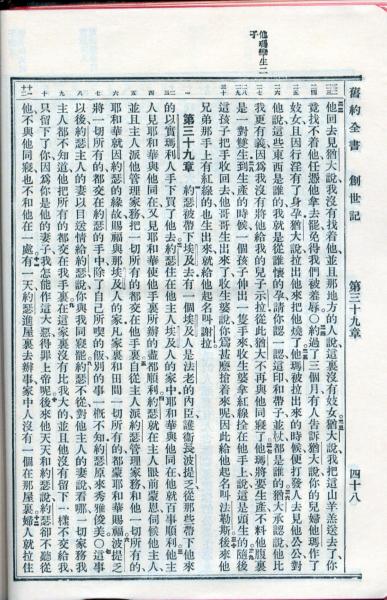 他瑪孿生二子
舊約全書 創世記 第三十九章 四十八
他回去見猶大說我沒有找着他並且那地方的人說這裏沒有妓女猶大說我把這山羊羔送去了你
竟找不着他任憑他拿去罷免得我們被羞辱○約過了三個月有人告訴猶大說你的兒婦他瑪作了
妓女且因行淫有了身孕猶大說拉出他來把他燒了他瑪被拉出來的時候便打發人去見他公公對
他說這些東西是誰的我就是從誰懷的孕請你認一認這印和帶子並杖都是誰的猶大承認說他比
我更有義因爲我沒有將他給我的兒子示拉從此猶大不再與他同寢了他瑪將要生產不料他腹裏
是一對雙生到生產的時候一個孩子伸出一隻手來收生婆拿紅線拴在他手上說這是頭生的隨後
這孩子把手收回去他哥哥生出來了收生婆說你爲甚麼搶着來呢因此給他起名叫法勒斯後來他
兄弟那手上有紅線的也生出來就給他起名叫謝拉
第三十九章 約瑟被帶下埃及去有一個埃及人是法老的內臣護衛長波提乏從那些帶下他來
的以實瑪利人手下買了他去約瑟住在他主人埃及人的家中耶和華與他同在他就百事順利他主
人見耶和華與他同在又見耶和華使他手裏所辦的盡都順利約瑟就在主人眼前蒙恩伺候他主人
並且主人派他管理家務把一切所有的都交在他手裏自從主人派約瑟管理家務和他一切所有的
耶和華就因約瑟的緣故賜福與那埃及人的家凡家裏和田間一切所有的都蒙耶和華賜福波提乏
將一切所有的都交在約瑟的手中除了自己所喫的飯別的事一概不知約瑟原來秀雅俊美○這事
以後約瑟主人的妻以目送情給約瑟說你與我同寢罷約瑟不從對他主人的妻說看哪一切家務我
主人都不知道他把所有的都交在我手裏在這家裏沒有比我大的並且他沒有留下一樣不交給我
只留下了你因爲你是他的妻子我怎能作這大惡得罪上帝呢後來他天天和約瑟說約瑟卻不聽從
他不與他同寢也不和他在一處有一天約瑟進屋裏去辦事家中人沒有一個在那屋裏婦人就拉住